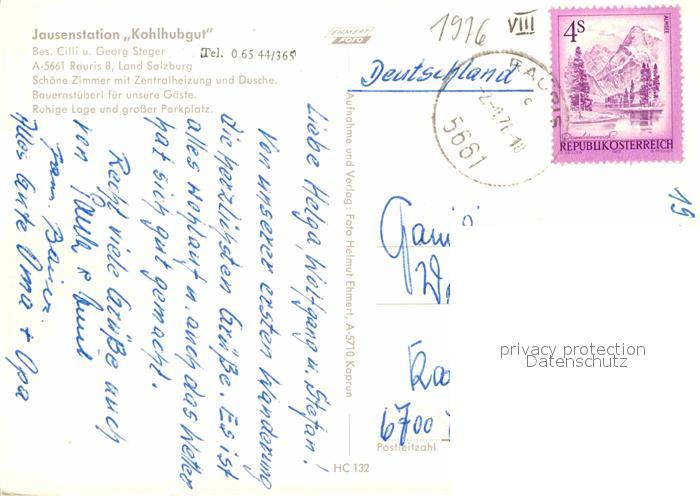 Jausenstation „Kohlhubgut"
Bes. Cilli u. Georg Steger
Tel. 0 65 44/365
A-5661 Rauris 8, Land Salzburg
Schöne Zimmer mit Zentralheizung und Dusche.
Bauernstüberl für unsere Gäste.
Ruhige Lage und großer Parkplatz.
EHMERT
FOTO
1976 VIII
Deutschland
RAURIS
5661
4S
ALMSEE
REPUBLIK ÖSTERREICH
19
Liebe Helga, Wolfgang u. Stefan!
Von unserer ersten Wanderung
die herzlichsten Grüße. Es ist
alles wohlauf u. auch das Wetter
hat sich gut gemacht.
Recht viele Grüße auch
von
Alles Gute Oma + Opa
Aufnahme und Verlag: Foto Helmut Ehmert, A-5710 Kaprun
6700
Postleitzahl
HC 132
privacy protection
Datenschutz